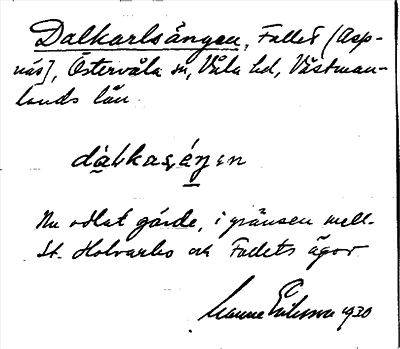 Dalkarlsängen, Fallet (Asp-
näs), Östervåla sn, Våla hd, Västman-
lands län
dàlkasǽŋən
Nu odlat gärde, i gränsen mell.
St. Holvarbo och Fallets ägor
Manne Eriksson 1930